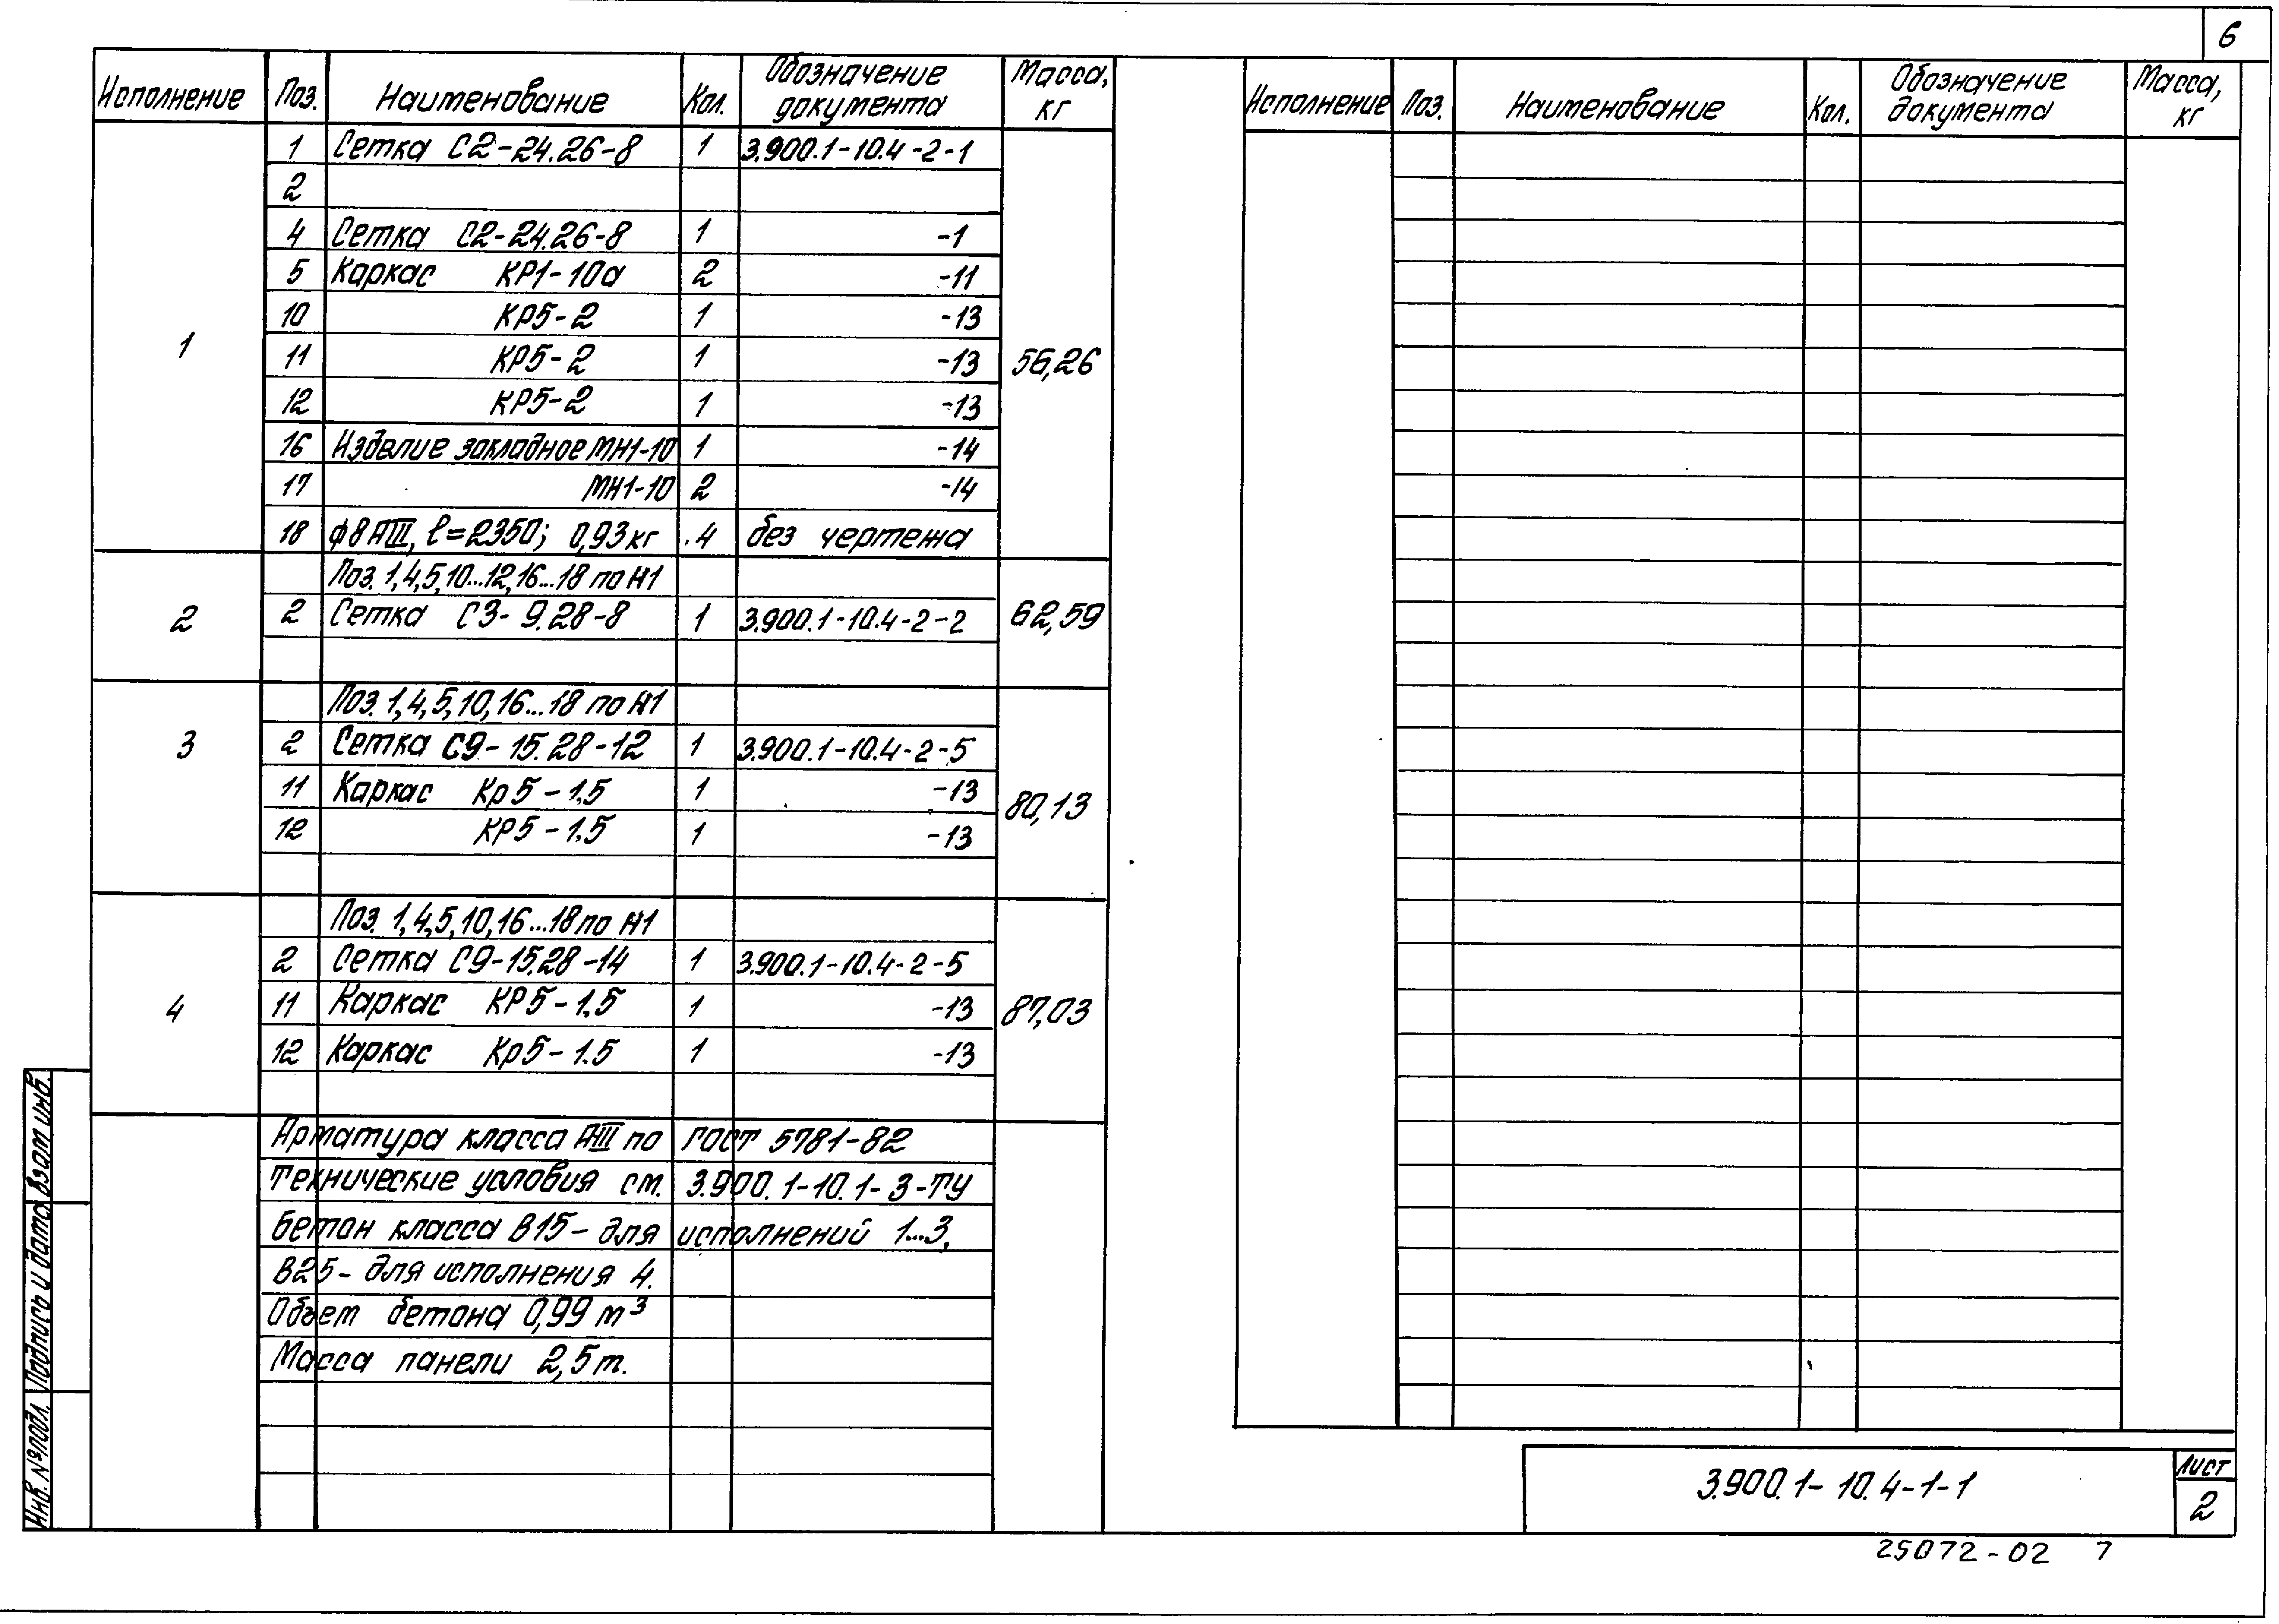 6
Исполнение Поз. Наименование Кол. Обозначение документа Масса, кг
1 Сетка С2-24.26-8 1 3.900.1-10.4-2-1
2
4 Сетка С2-24.26-8 1 -1
5 Каркас КР1-10а 2 -11
10 КР5-2 1 -13
1 11 КР5-2 1 -13 56,26
12 КР5-2 1 -13
16 Изделие закладное МН1-10 1 -14
17 МН1-10 2 -14
18 ф8АIII, ℓ=2350; 0,93кг 4 без чертежа
Поз. 1,4,5,10...12,16...18 по И1
2 2 Сетка С3-9.28-8 1 3.900.1-10.4-2-2 62,59
Поз. 1,4,5,10,16...18 по И1
3 2 Сетка С9-15.28-12 1 3.900.1-10.4-2-5
11 Каркас Кр5-1.5 1 -13 80,13
12 КР5-1.5 1 -13
Поз. 1,4,5,10,16...18 по И1
2 Сетка С9-15.28-14 1 3.900.1-10.4-2-5
4 11 Каркас КР5-1.5 1 -13 87,03
12 Каркас Кр5-1.5 1 -13
Арматура класса АIII по ГОСТ 5781-82
Технические условия см. 3.900.1-10.1-3-ТУ
Бетон класса В15 - для исполнений 1...3,
В25 - для исполнения 4.
Объем бетона 0,99 м³
Масса панели 2,5т.
Исполнение Поз. Наименование Кол. Обозначение документа Масса, кг
Взам инв.
Подпись и дата
Инв. № подл.
3.900.1-10.4-1-1
Лист
2
25072-02 7